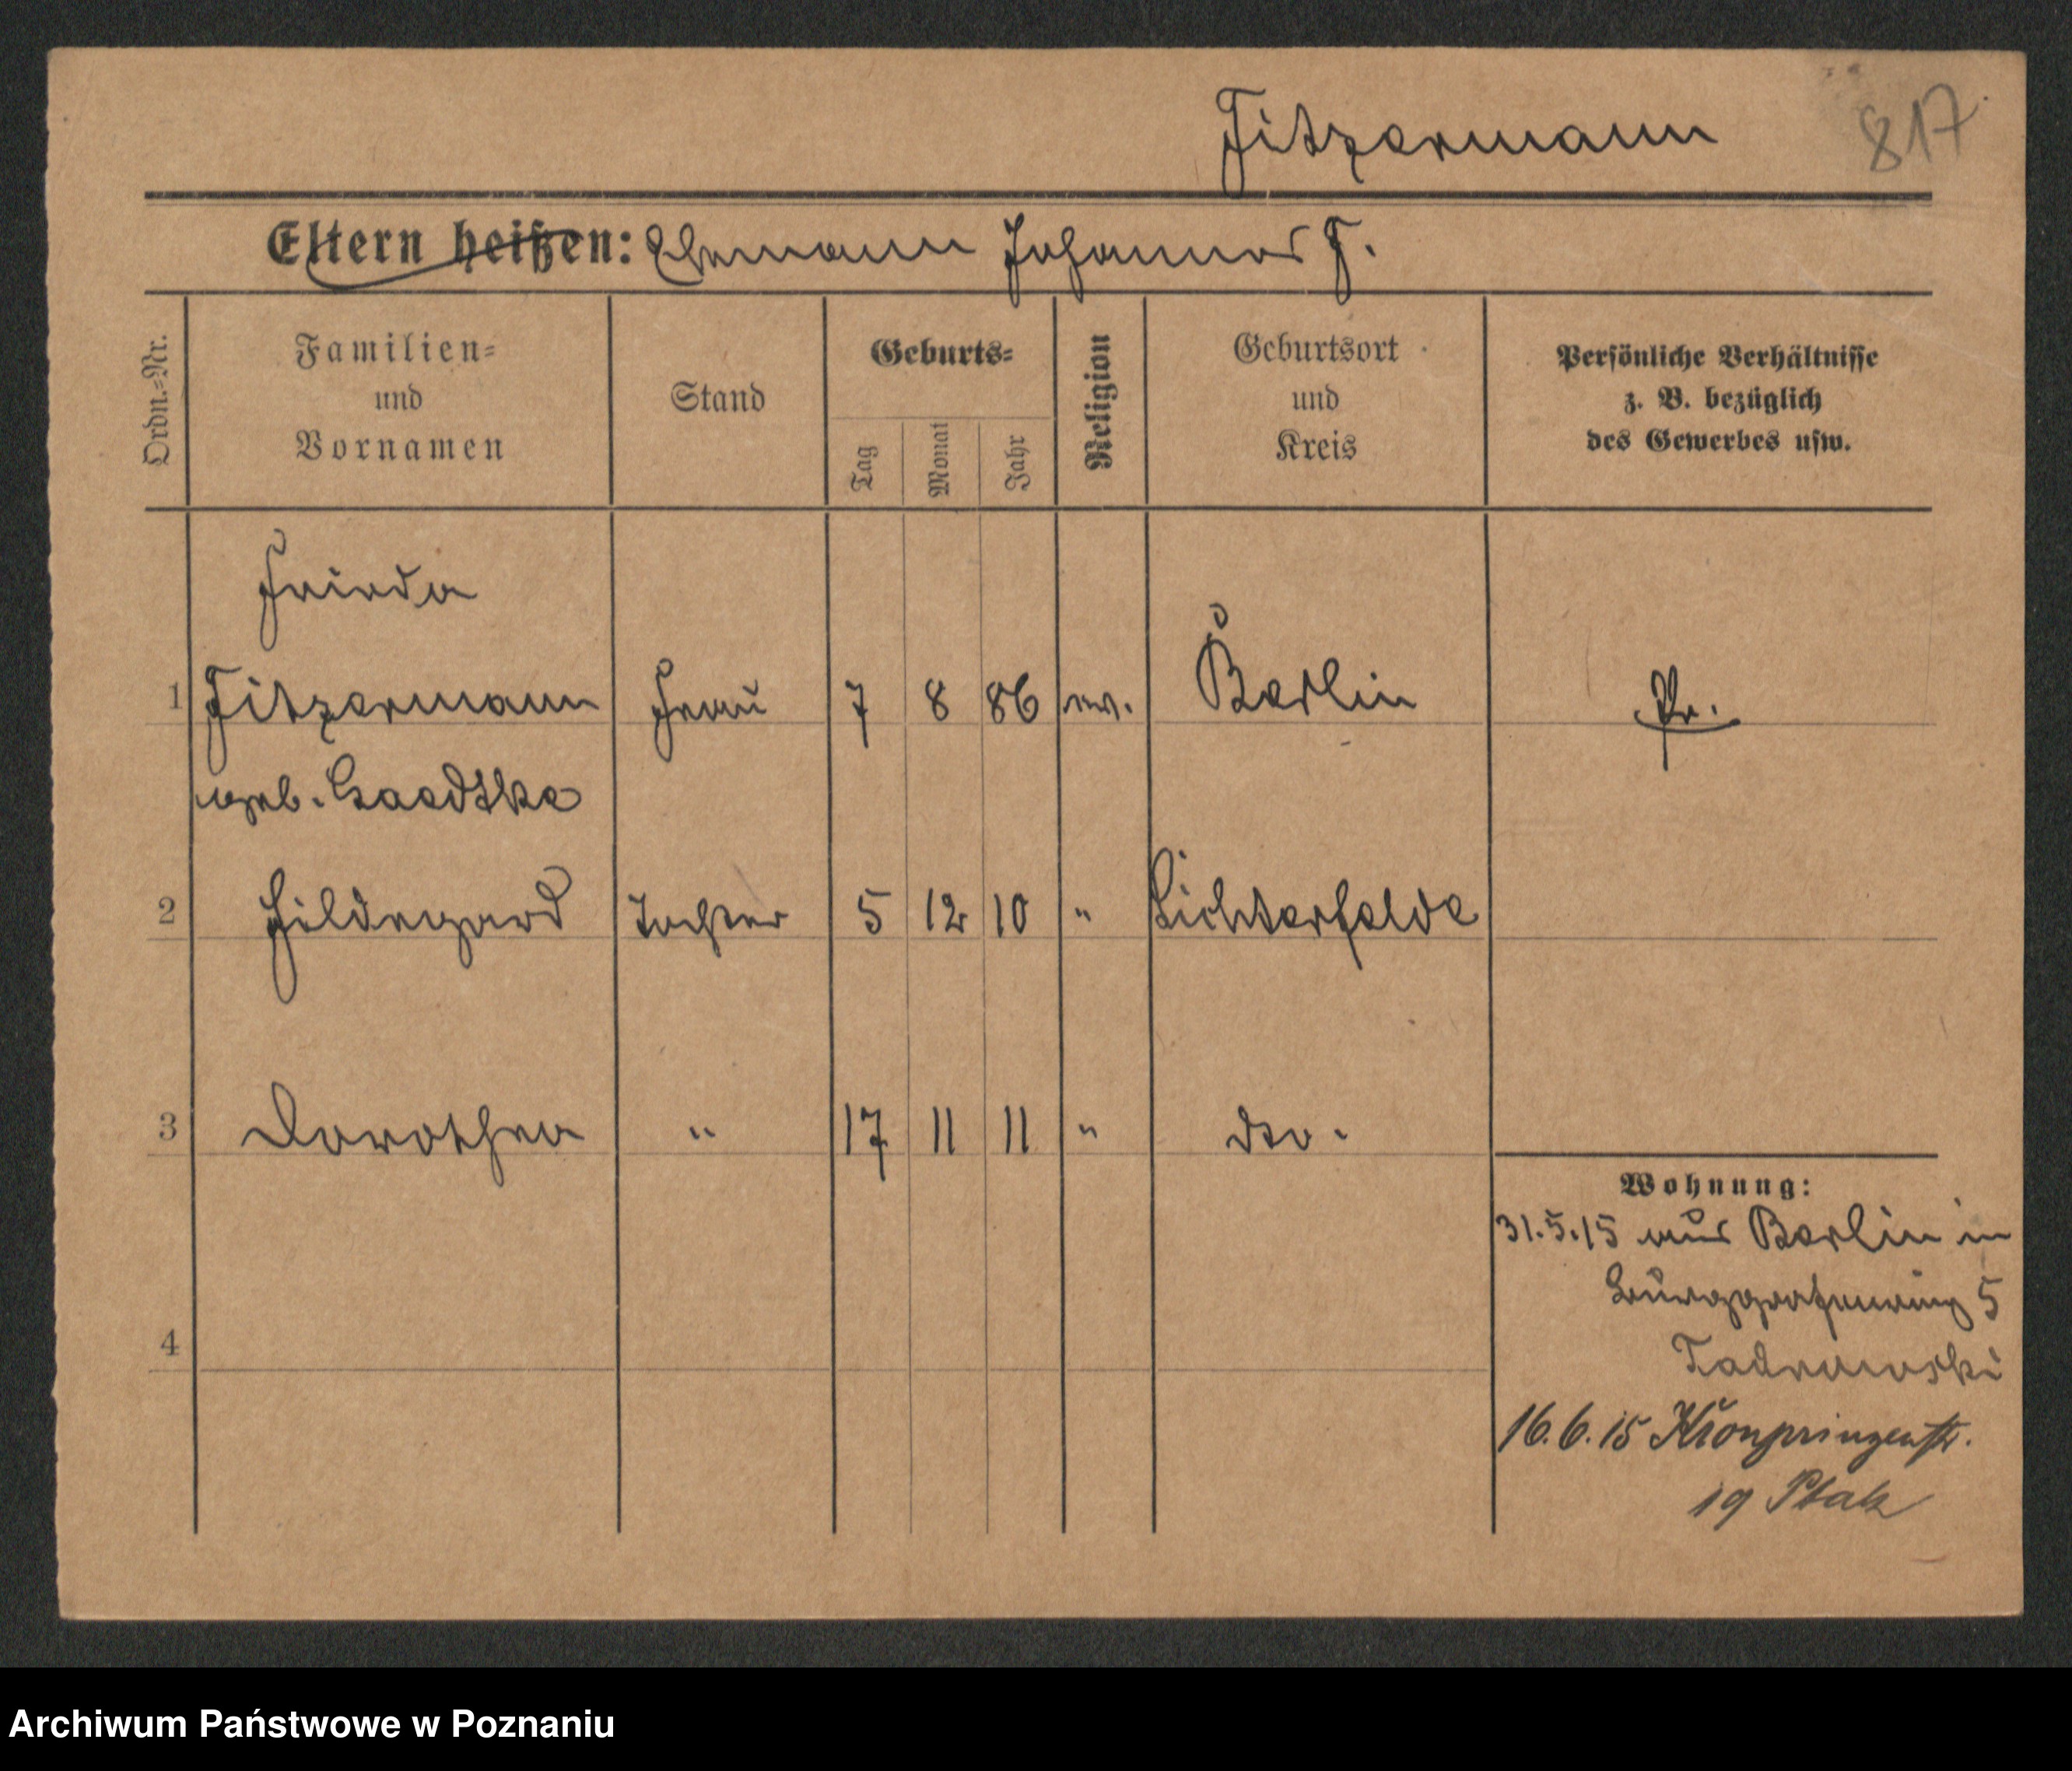 Fitzermann 817
Eltern heißen: Ehemann Johannes F.
Ordn.-Nr.
Familien-
und
Vornamen
Stand
Geburts-
Tag
Monat
Jahr
Religion
Geburtsort
und
Kreis
Persönliche Verhältnisse
z. B. bezüglich
des Gewerbes usw.
Frieda
1 Fitzermann Frau 7 8 86 ev. Berlin Pr.
geb. Gaedtke
2 Hildegard Tochter 5 12 10 " Lichterfelde
3 Dorothea " 17 11 11 " dto.
Wohnung:
31.5.15 aus Berlin in
Burggrafenring 5
16.6.15 Kronprinzenstr.
19
4
Archiwum Państwowe w Poznaniu